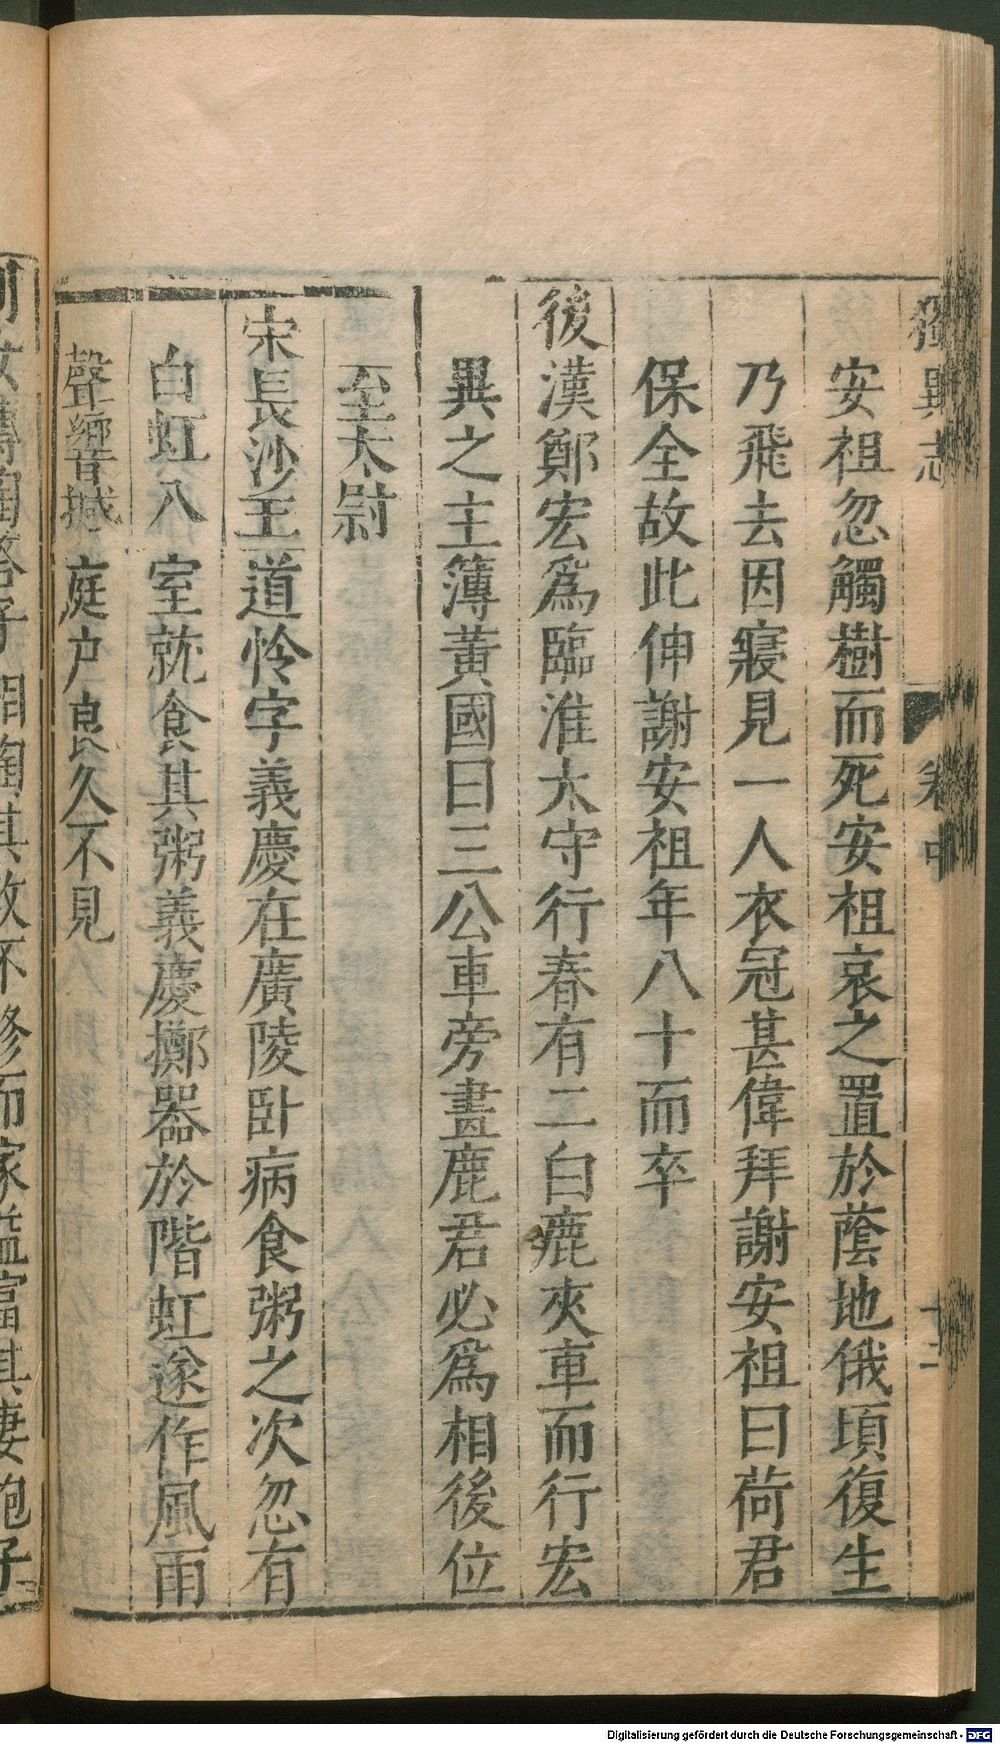 獨異志
卷中
十二
安祖忽觸樹而死安祖哀之置於蔭地俄頃復生
乃飛去因寢見一人衣冠甚偉拜謝安祖曰荷君
保全故此伸謝安祖年八十而卒
後漢鄭宏爲臨淮太守行春有二白鹿夾車而行宏
異之主簿黃國曰三公車旁畫鹿君必爲相後位
至太尉
宋長沙王道怜字義慶在廣陵卧病食粥之次忽有
白虹入室就食其粥義慶擲器於階虹遂作風雨
聲響撼庭户良久不見
Digitalisierung gefördert durch die Deutsche Forschungsgemeinschaft - DFG